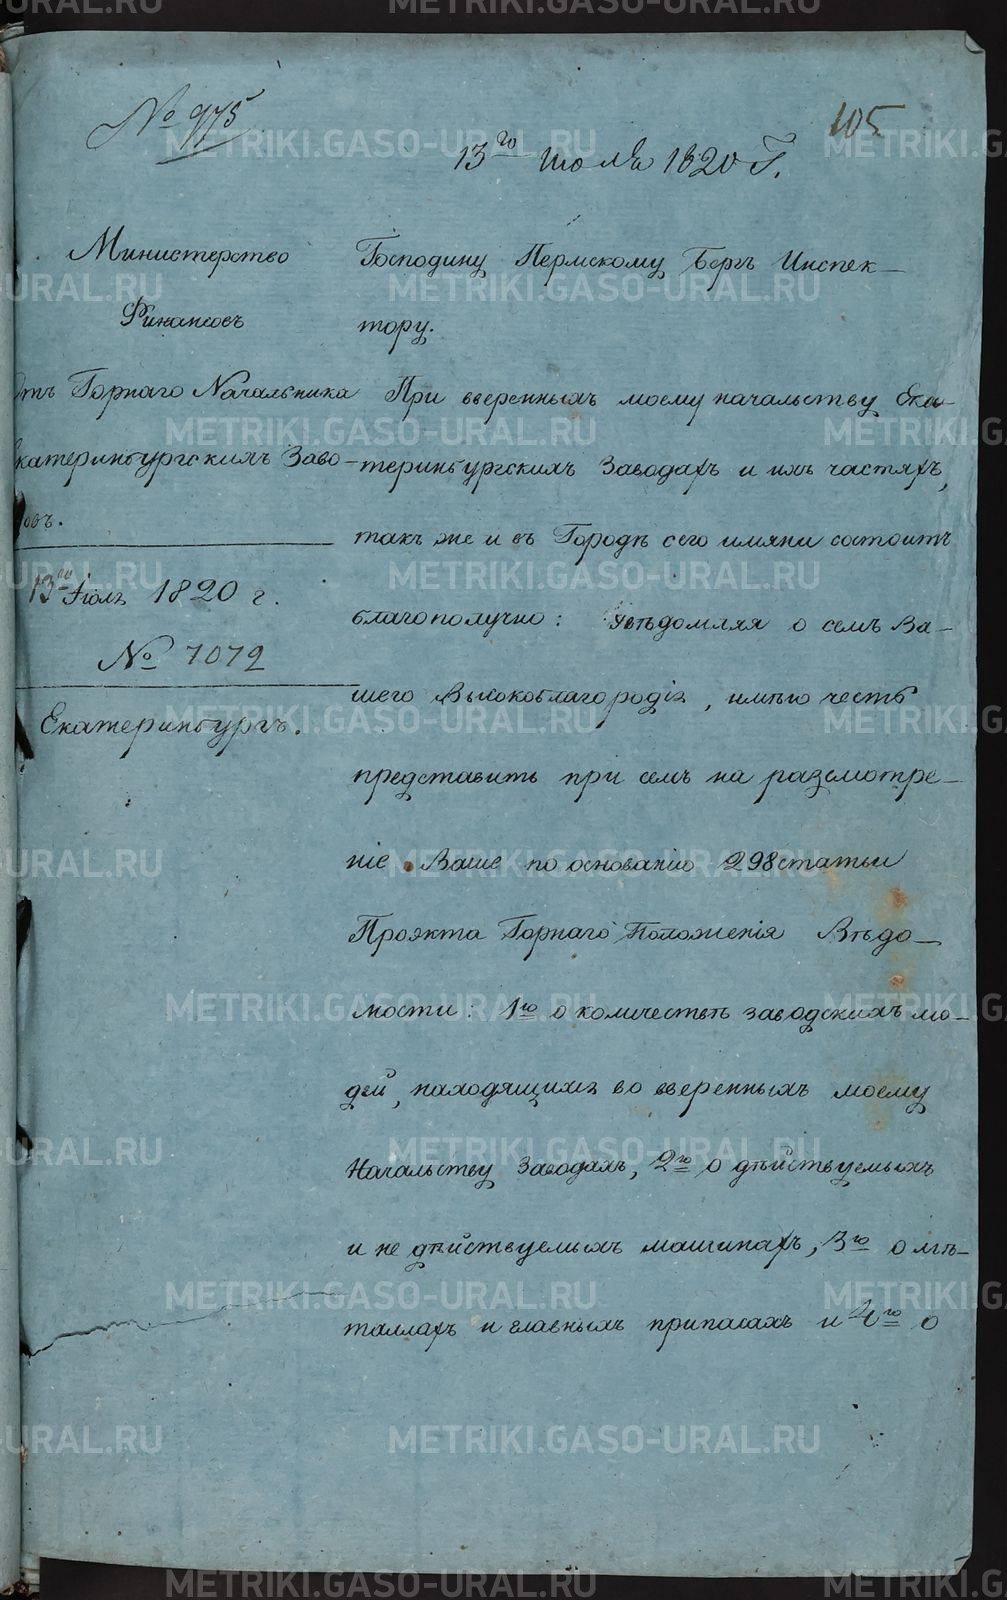 № 975
105
13го июля 1820 Г.
Министерство
Финансовъ
Отъ Горнаго Начальника
Екатеринбургскихъ Заво-
довъ.
13го Іюля 1820 г.
№ 7072
Екатеринбургъ.
Господину Пермскому Бергъ Инспек-
тору.
При вверенныхъ моему начальству Ека-
теринбургскихъ Заводахъ и ихъ частяхъ,
такъ же и въ Городѣ сего имяни состоитъ
благополучно: Увѣдомляя о семъ Ва-
шего Высокоблагородія, имѣю честь
представить при семъ на разсмотре-
ніе Ваше по основанію 298 статьи
Проэкта Горнаго Положенія Вѣдо-
мости: 1ю о количествѣ заводскихъ лю-
дей, находящихся во вверенныхъ моему
Начальству Заводахъ, 2ю о дѣйствуемыхъ
и не дѣйствуемыхъ машинахъ, 3ю о мѣ-
таллахъ и главныхъ припасахъ и 4ю о
METRIKI.GASO-URAL.RU